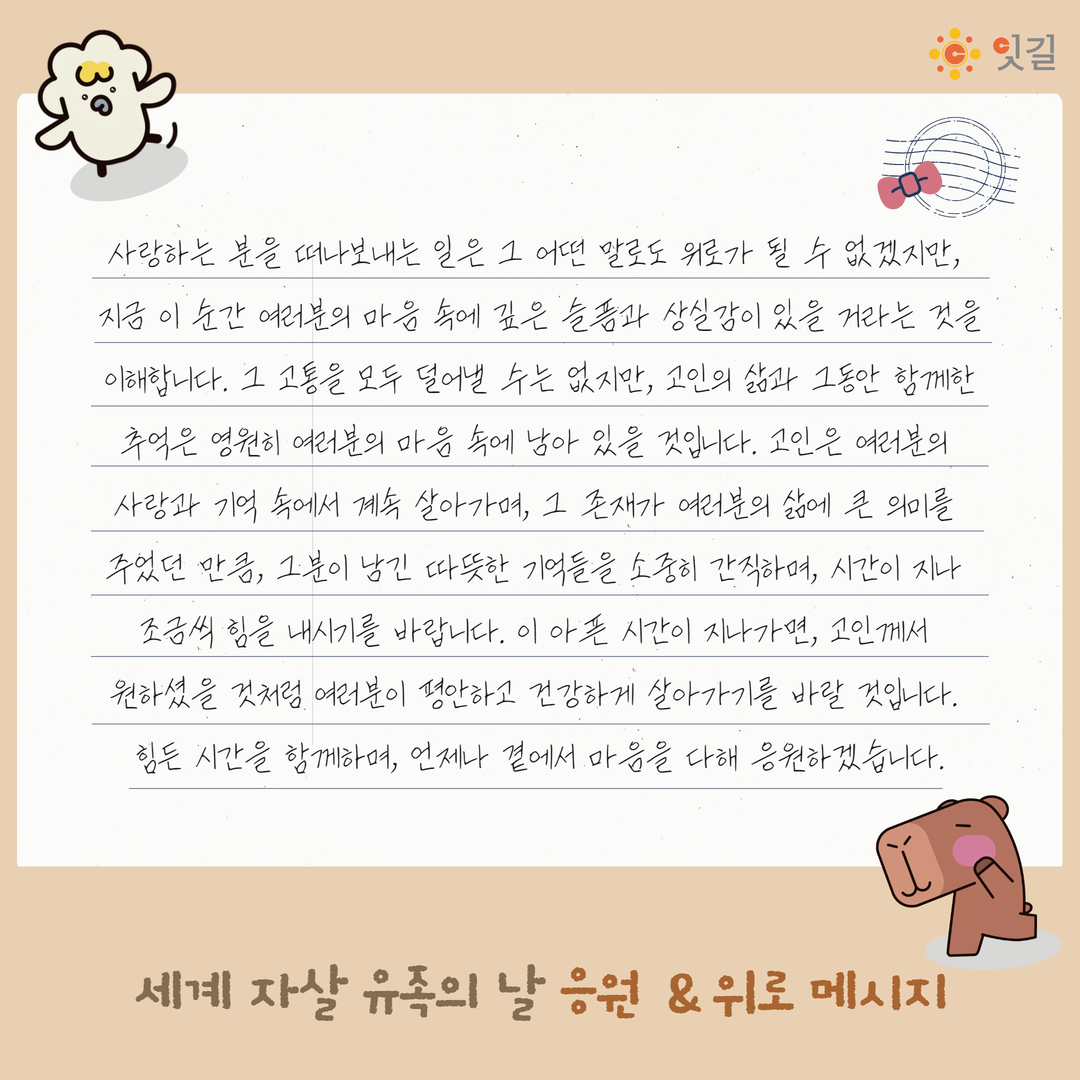 잇길
사랑하는 분을 떠나보내는 일은 그 어떤 말로도 위로가 될 수 없겠지만,
지금 이 순간 여러분의 마음 속에 깊은 슬픔과 상실감이 있을 거라는 것을
이해합니다. 그 고통을 모두 덜어낼 수는 없지만, 고인의 삶과 그동안 함께한
추억은 영원히 여러분의 마음 속에 남아 있을 것입니다. 고인은 여러분의
사랑과 기억 속에서 계속 살아가며, 그 존재가 여러분의 삶에 큰 의미를
주었던 만큼, 그분이 남긴 따뜻한 기억들을 소중히 간직하며, 시간이 지나
조금씩 힘을 내시기를 바랍니다. 이 아픈 시간이 지나가면, 고인께서
원하셨을 것처럼 여러분이 평안하고 건강하게 살아가기를 바랄 것입니다.
힘든 시간을 함께하며, 언제나 곁에서 마음을 다해 응원하겠습니다.
세계 자살 유족의 날 응원 & 위로 메시지